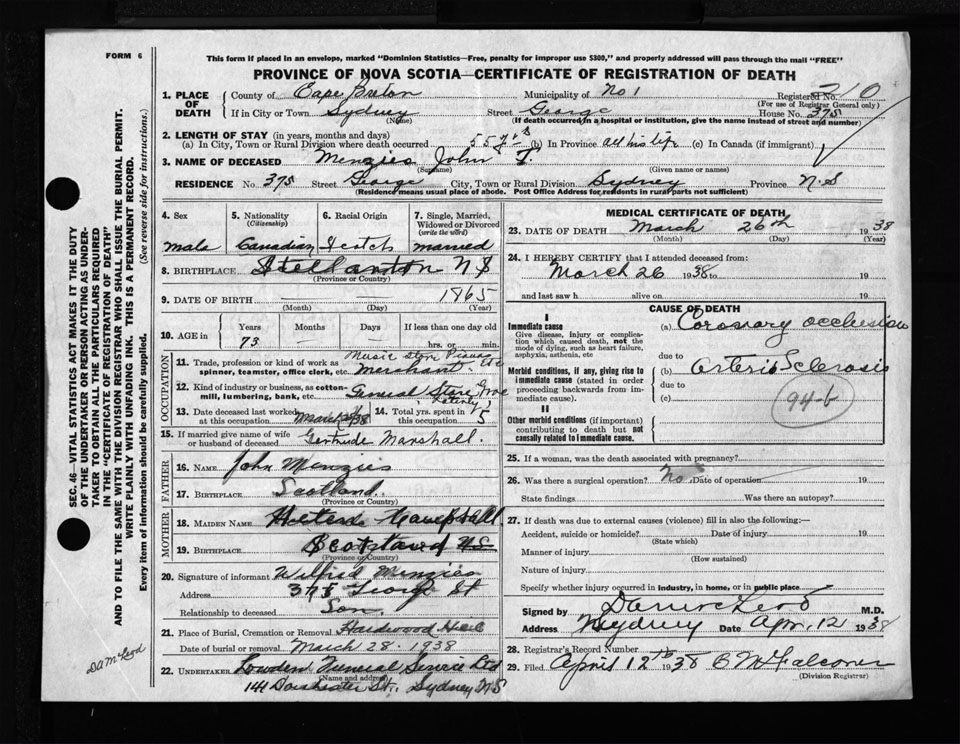 FORM 6
This form if placed in an envelope, marked "Dominion Statistics—Free, penalty for improper use $300," and properly addressed will pass through the mail "FREE"
PROVINCE OF NOVA SCOTIA—CERTIFICATE OF REGISTRATION OF DEATH
SEC. 46—VITAL STATISTICS ACT MAKES IT THE DUTY
OF THE UNDERTAKER OR PERSON ACTING AS UNDER-
TAKER TO OBTAIN ALL THE PARTICULARS REQUIRED
IN THE "CERTIFICATE OF REGISTRATION OF DEATH"
AND TO FILE THE SAME WITH THE DIVISION REGISTRAR WHO SHALL ISSUE THE BURIAL PERMIT.
WRITE PLAINLY WITH UNFADING INK. THIS IS A PERMANENT RECORD.
Every item of information should be carefully supplied. (See reverse side for instructions.)
1. PLACE OF DEATH
County of Cape Breton Municipality of No 1 Registered No. 210
(For use of Registrar General only)
If in City or Town Sydney Street George House No. 375
(Name) (If death occurred in a hospital or institution, give the name instead of street and number)
2. LENGTH OF STAY (in years, months and days)
(a) In City, Town or Rural Division where death occurred 55 yrs (b) In Province all his life (c) In Canada (if immigrant)
3. NAME OF DECEASED Menzies John T.
(Surname) (Given name or names)
RESIDENCE No. 375 Street George City, Town or Rural Division Sydney Province N.S
(Residence means usual place of abode. Post Office Address for residents in rural parts not sufficient)
4. Sex 5. Nationality (Citizenship) 6. Racial Origin 7. Single, Married, Widowed or Divorced (write the word)
male Canadian Scotch married
8. BIRTHPLACE Stellarton N S
(Province or Country)
9. DATE OF BIRTH — — 1865
(Month) (Day) (Year)
10. AGE Years Months Days If less than one day
73 — — hrs. or min.
OCCUPATION
11. Trade, profession or kind of work as spinner, teamster, office clerk, etc. Music store Pianos etc Merchant
12. Kind of industry or business, as cotton-mill, lumbering, bank, etc. General Store
13. Date deceased last worked at this occupation 14. Total yrs. spent in this occupation 5
15. If married give name of wife or husband of deceased Gertrude Marshall.
FATHER
16. NAME John Menzies
17. BIRTHPLACE Scotland.
(Province or Country)
MOTHER
18. MAIDEN NAME
19. BIRTHPLACE Scotland
(Province or Country)
20. Signature of informant Wilfrid Menzies
Address 375 George St
Relationship to deceased Son.
21. Place of Burial, Cremation or Removal Hardwood Hill
Date of burial or removal March 28. 1938
22. UNDERTAKER Lowden Funeral Service Ltd
(Name and address)
144 Dorchester St., Sydney N S
DA McLeod
MEDICAL CERTIFICATE OF DEATH
23. DATE OF DEATH March 26th 1938
(Month) (Day) (Year)
24. I HEREBY CERTIFY that I attended deceased from:
March 26 1938 to 19
and last saw h alive on 19
CAUSE OF DEATH
I
Immediate cause
Give disease, injury or complication which caused death, not the mode of dying, such as heart failure, asphyxia, asthenia, etc
(a) Coronary occlusion
due to
Morbid conditions, if any, giving rise to immediate cause (stated in order proceeding backwards from immediate cause).
(b) Arterio Sclerosis
due to
(c)
94-b
II
Other morbid conditions (if important) contributing to death but not causally related to immediate cause.
25. If a woman, was the death associated with pregnancy?
26. Was there a surgical operation? No Date of operation 19
State findings Was there an autopsy?
27. If death was due to external causes (violence) fill in also the following:—
Accident, suicide or homicide? Date of injury 19
(State which)
Manner of injury
(How sustained)
Nature of injury
Specify whether injury occurred in industry, in home, or in public place
Signed by M.D.
Address Sydney Date Apr. 12 1938
28. Registrar's Record No.
29. Filed April 12th 1938 Falconer
(Division Registrar)